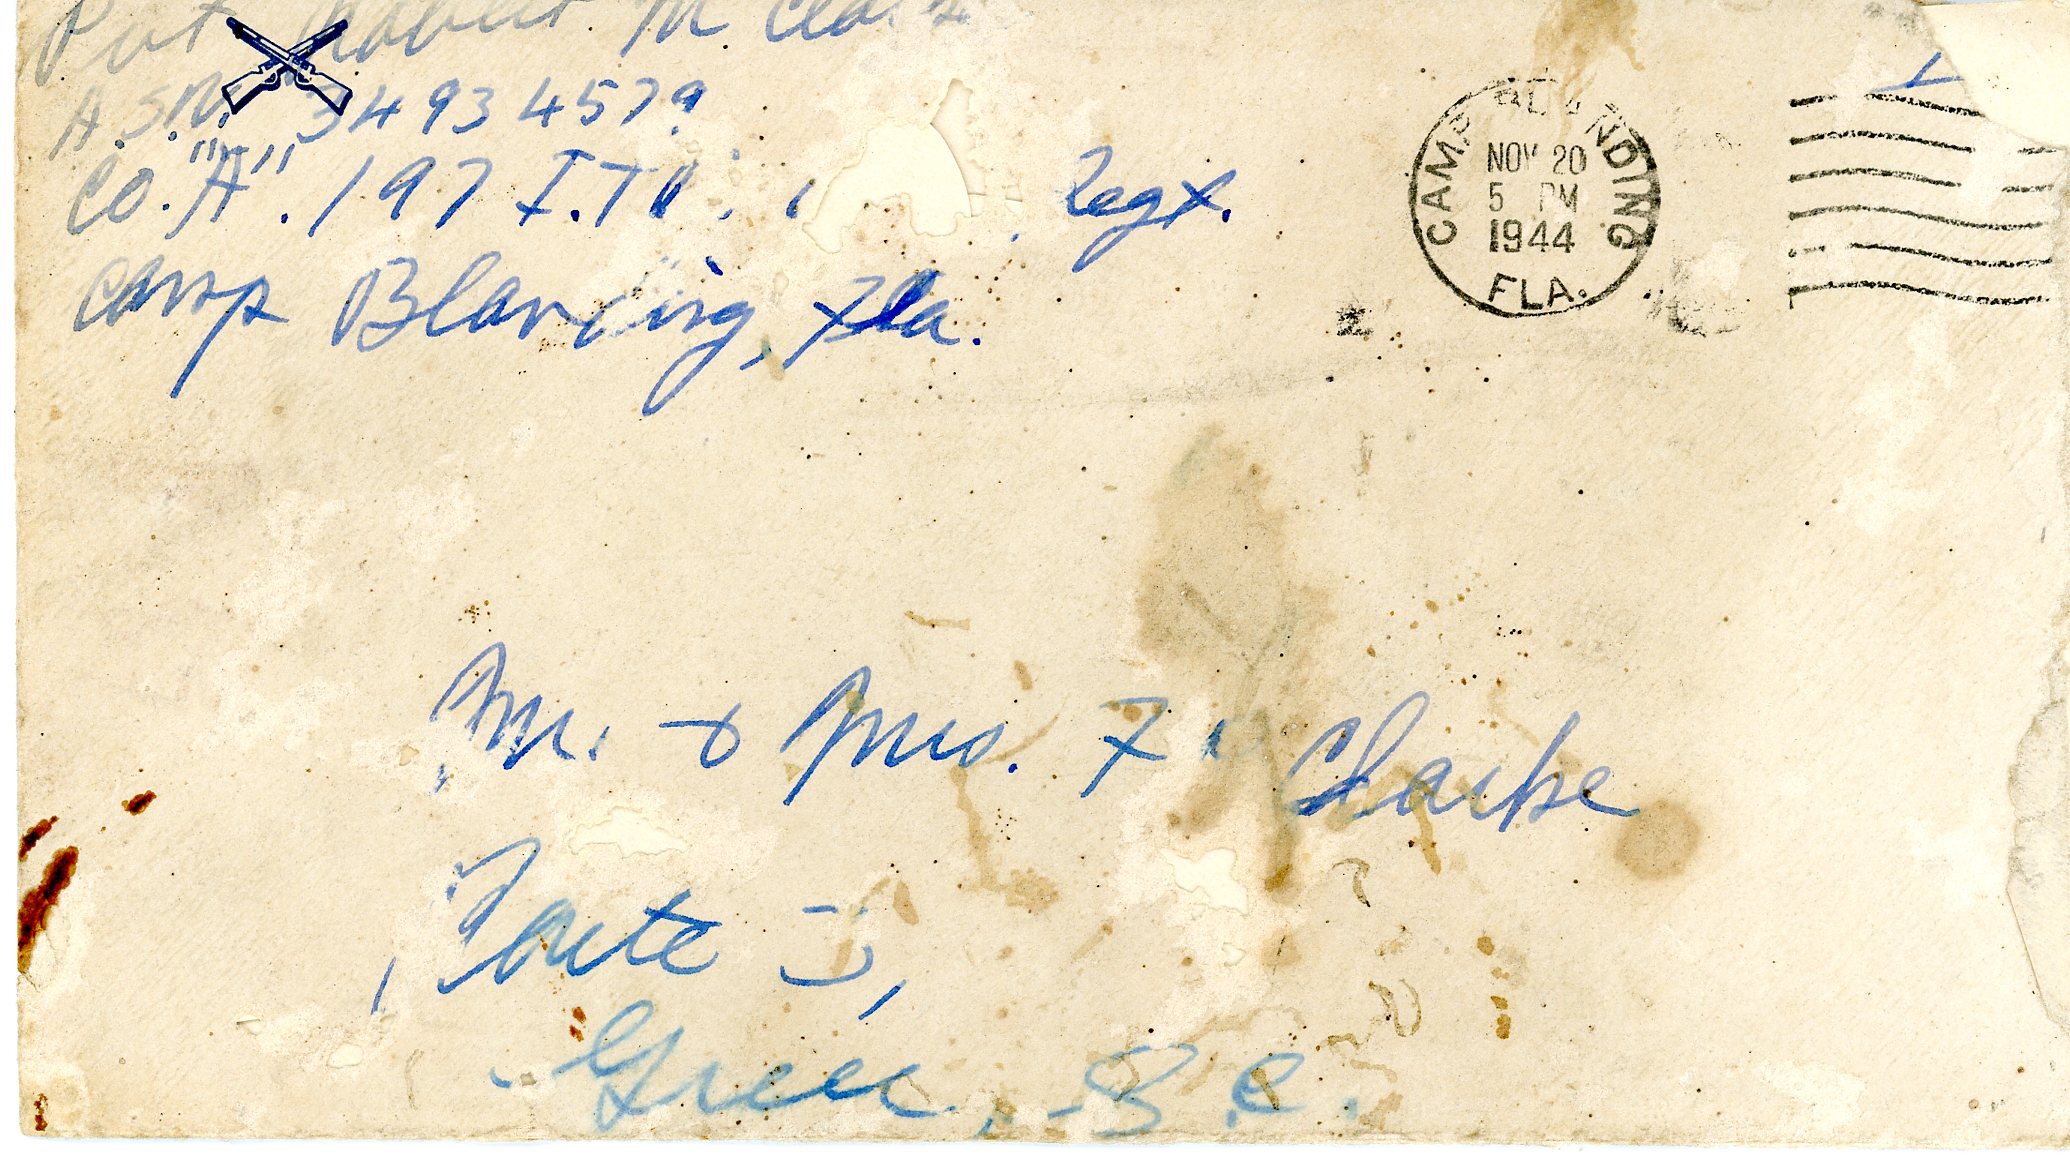 Pvt Robert M Clarke
A.S.N. 34934579
Co. "A". 197 I.T.B. Regt.
Camp Blanding, Fla.
CAMP BLANDING
NOV 20
5 PM
1944
FLA.
Mr. & Mrs. F Clarke
Route
Greer, S.C.